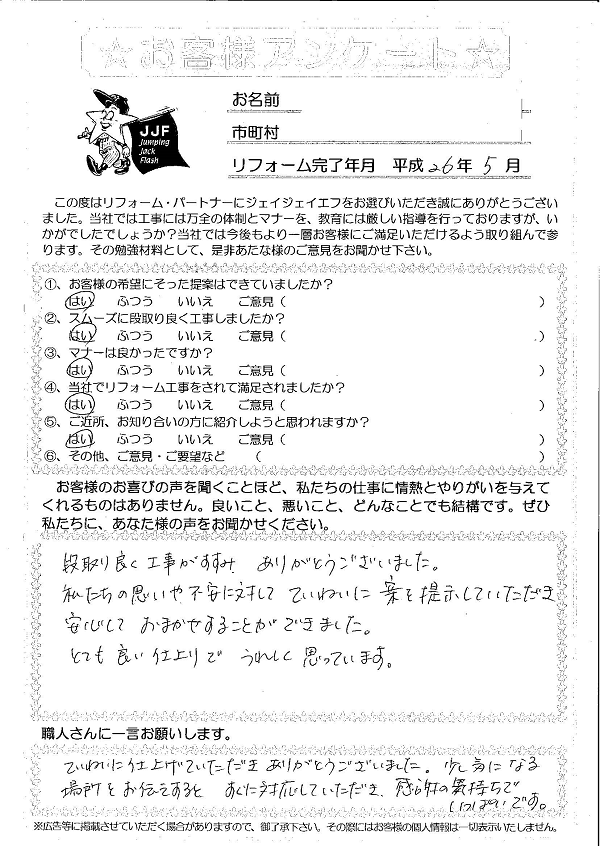 ☆お客様アンケート☆
JJF
Jumping
Jack
Flash
お名前
市町村
リフォーム完了年月 平成26年5月
この度はリフォーム・パートナーにジェイジェイエフをお選びいただき誠にありがとうござい
ました。当社では工事には万全の体制とマナーを、教育には厳しい指導を行っておりますが、い
かがでしたでしょうか？当社では今後もより一層お客様にご満足いただけるよう取り組んで参
ります。その勉強材料として、是非あなた様のご意見をお聞かせ下さい。
①、お客様の希望にそった提案はできていましたか？
はい ふつう いいえ ご意見（ ）
②、スムーズに段取り良く工事しましたか？
はい ふつう いいえ ご意見（ ）
③、マナーは良かったですか？
はい ふつう いいえ ご意見（ ）
④、当社でリフォーム工事をされて満足されましたか？
はい ふつう いいえ ご意見（ ）
⑤、ご近所、お知り合いの方に紹介しようと思われますか？
はい ふつう いいえ ご意見（ ）
⑥、その他、ご意見・ご要望など （ ）
お客様のお喜びの声を聞くことほど、私たちの仕事に情熱とやりがいを与えて
くれるものはありません。良いこと、悪いこと、どんなことでも結構です。ぜひ
私たちに、あなた様の声をお聞かせください。
段取り良く工事がすすみ ありがとうございました。
私たちの思いや不安に対して ていねいに 案を提示していただき
安心して おまかせすることができました。
とても良い仕上りで うれしく思っています。
職人さんに一言お願いします。
ていねいに仕上げていただき ありがとうございました。少し気になる
場所をお伝えすると すぐに対応していただき、感謝の気持ちで
いっぱいです。
※広告等に掲載させていただく場合がありますので、御了承下さい。その際にはお客様の個人情報は一切表示いたしません。